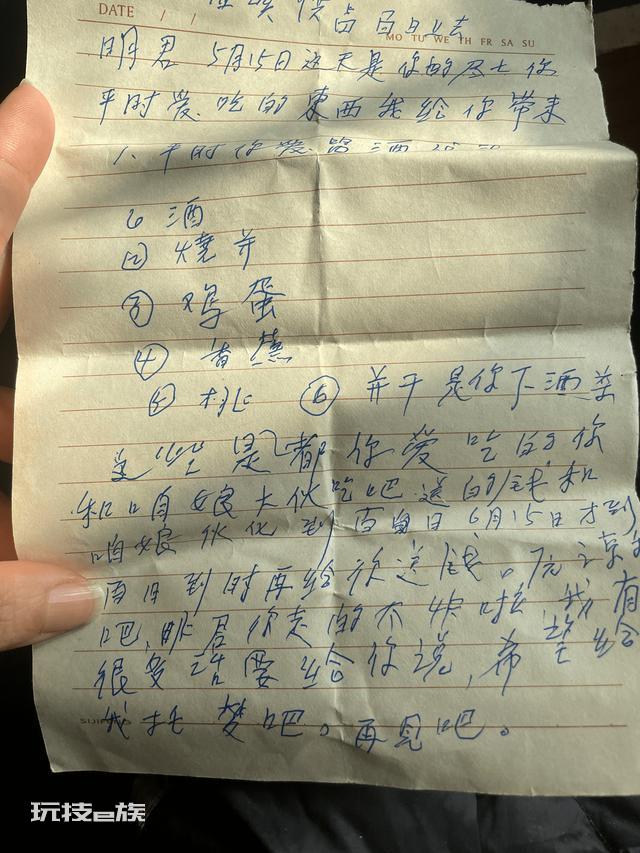 DATE / /
百日
MO TU WE TH FR SA SU
明君 5月15日这天是你的 你
平时爱吃的東西我给你带来
1、平时你爱 酒
酒
② 燒并
③ 鸡蛋
④ 香蕉
⑤ 桃 ⑥ 并干是你下酒菜
这些是都你爱吃的你
和咱娘大伙吃吧送的钱和
咱娘伙化到百日6月15日才到
百日到时再给你送钱。
吧,明君你走的太 我有
很多话要给你说,希望给
我托梦吧。再見吧。
玩技e族